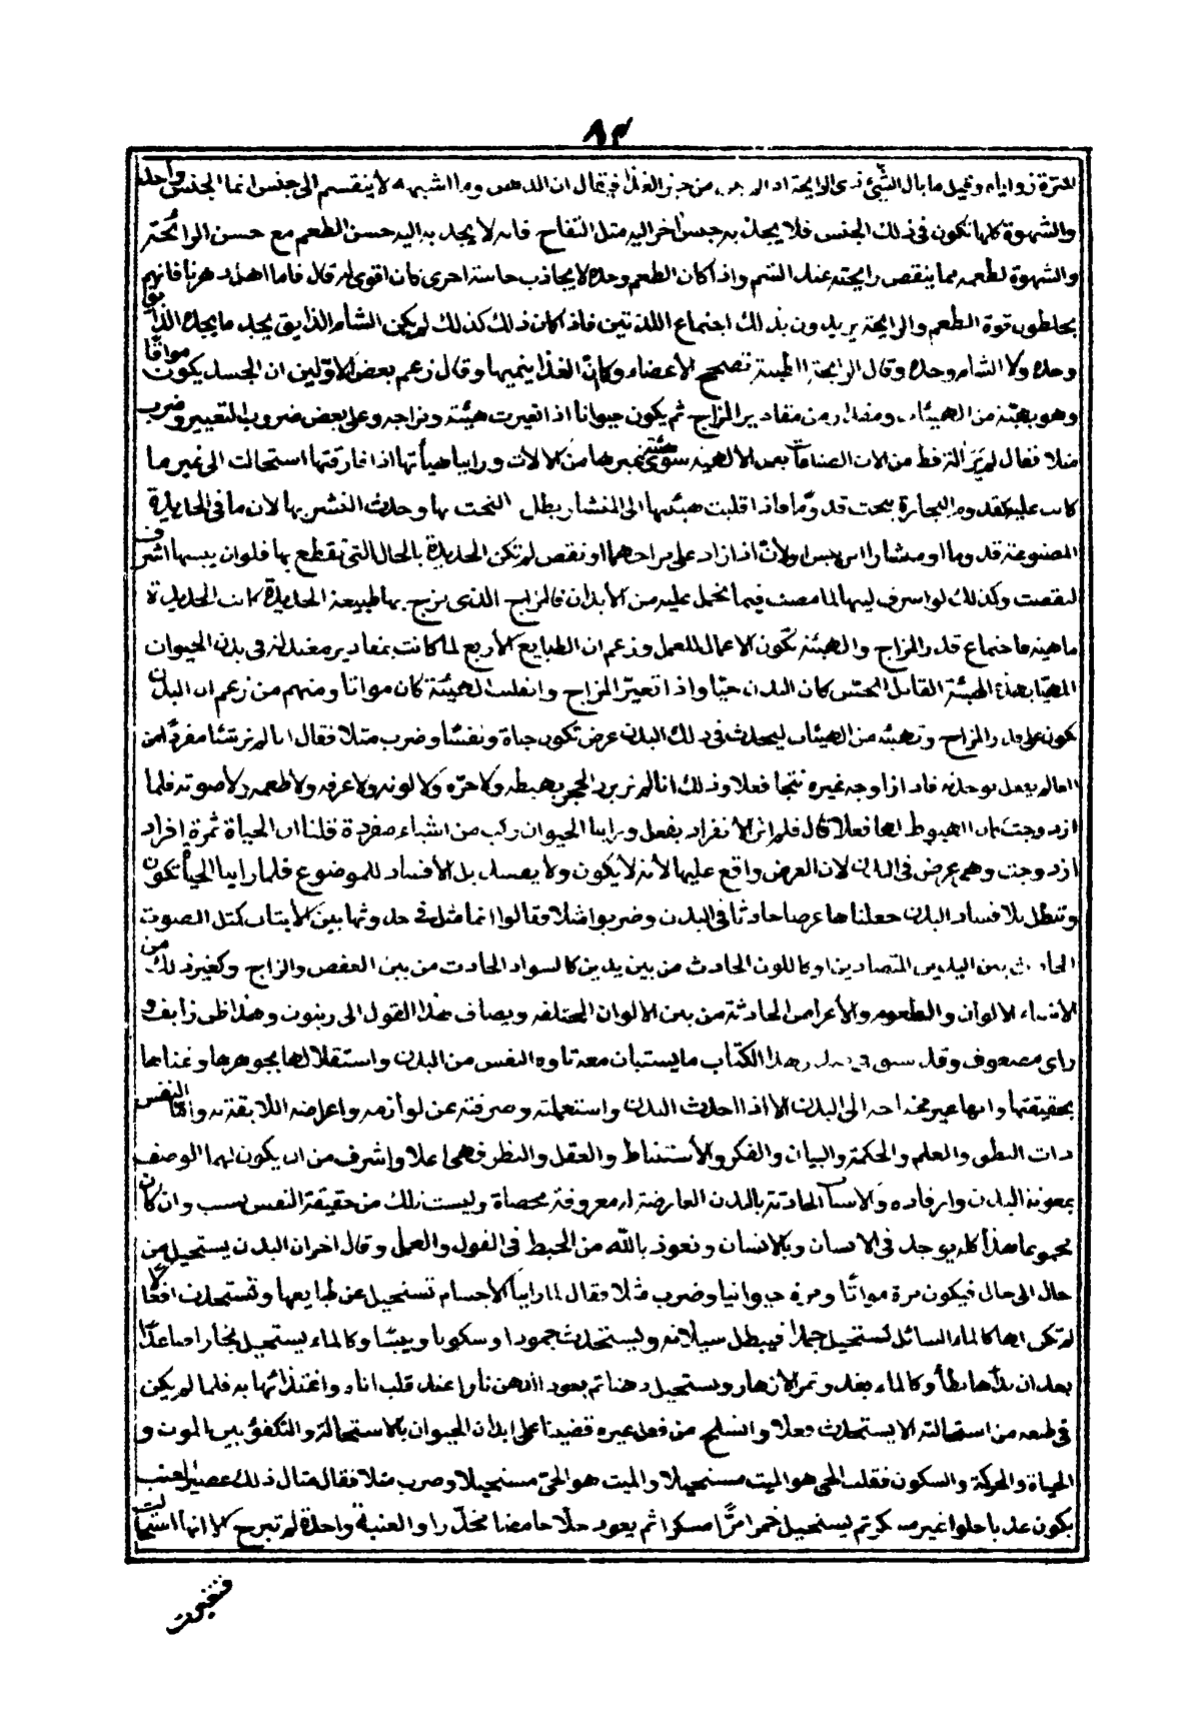 ٨٢
لكثرة زواياه وقيل ما بال الشيء ذي الرايحة من فيقال ان الدهن وما اشبهه لا ينقسم الى جنس انما الجنس واحد
والشهوة كلها تكون في ذلك الجنس فلا يجذبه جنس اخر اليه مثل التفاح فانه لا يجد به اليه حسن الطعم مع حسن الرائحة
والشهوة لطعمه مما ينقص رايحته عند الشم واذا كان الطعم وحده لا يجاذب حاسة اخرى كان اقوى له قال فاما اهل دهرنا فانهم
يخلطون قوة الطعم والرايحة يريدون بذلك اجتماع اللذتين فاذا كان ذلك كذلك لم يكن الشام الذايق يجد ما يجده الذايق
وحده ولا الشام وحده وقال الرايحة الطيبة تصحح الأعضاء وكانّ الغذا ينميها وقال زعم بعض الاوّلين ان الجسد يكون مواتًا
وهو بهيّئة من الهيئات ومقدار من مقادير المزاج ثم يكون حيوانا اذا تغيرت هيئته ومزاجه وعلى بعض ضروب التغيير وضرب
مثلا فقال لم نَرَ الة قط من الات الصناعات بعد الالهية سوى هيئته غيرها من الالات وراينا هيأتها اذا فارقتها استحالت الى غير ما
كانت عليه كقدوم النجارة ينحت قدومًا فاذا قلبت هيئتها الى المنشار بطل النحت بها وحدث النشر بها لان ما في الحديدة
المصنوعة قدوما او منشارا من يبس ولين اذا زاد على مزاجهما او نقص لم تكن الحديدة بالحال التي تقطع بها فلو ان يبسها اشرف
لنقصت وكذلك لو اسرف لينها لما مضت فيما تحمل عليه من الأبدان فالمزاج الذي مزج بها طبيعة الحديدة كانت الحديدة
ماهية فاجتماع قدر المزاج والهيئة تكون الاعمال للعمل وزعم ان الطبايع الأربع لما كانت بمقادير معتدلة في بدن الحيوان
المهيّا بهذه الهيئة القابل الحسّ كان البدن حيّا واذا تغيّر المزاج وانقلبت الهيئة كان مواتا ومنهم من زعم ان البدن
يكون على قدر المزاج وتهيئه من الهيئات ليحدث في ذلك البدن عرض تكون حياة ونفسًا وضرب مثلا فقال انا لم نر شئا مفردًا من
العالم يفعل بوحدته فاذا ازاوجه غيره نتجا فعلا وذلك انا لم نر برد الحجر يهبطه ولا حرّه ولا لونه ولا عرفه ولا طعمه ولا صوته فلما
ازدوجت كان الهبوط لها فعلا قال فلم نر الانفراد يفعل وراينا الحيوان ركب من اشياء مفردة قلنا ان الحياة ثمرة افراد
ازدوجت وهي عرض في البدن لان العرض واقع عليها لانه لا يكون ولا يفسد بل الافساد للموضوع فلما راينا الحياة تكون
وتبطل بلا فساد البدن جعلناها عرضا حادثا في البدن وضربوا مثلا وقالوا انما مثل في حدوثها بين الأبتاب كمثل الصوت
الحادث بين اليدين المتصادمين او كاللون الحادث من بين يدين كالسواد الحادث من بين العفص والزاج وكغير ذلك من
الاشياء الالوان والطعوم والأعراض الحادثة من بين الالوان المختلفة ويضاف هذا القول الى زينون وهذا ظن زايف و
راي مضعوف وقد سبق في هذا الكتاب ما يستبان معه تاوه النفس من البدن واستقلالها بجوهرها وغناها
بحقيقتها وانها غير محتاجه الى البدن الا اذا احدث البدن واستعملته وصرفته عن لوازمه واعراضه اللايقة به وامّا النفس
ذات النطق والعلم والحكمة والبيان والفكر والأستنباط والعقل والنظر فهي اعلا واشرف من ان يكون لهما الوصف
بمعونة البدن وارفاده والاسباب الحادثة بالبدن العارضة له معروفة محصاة وليست تلك من حقيقة النفس بسبب وان كان
مجموعا هذا كله يوجد في الانسان وبالانسان ونعوذ بالله من الخبط في القول والعمل وقال اخر ان البدن يستحيل من
حال الى حال فيكون مرة مواتًا ومرة حيوانيا وضرب مثلا فقال لما راينا الأجسام تستحيل عن طبايعها وتستحدث افعالا
لم تكن لها كالماء السائل يستحيل جمدًا فيبطل سيلانه ويستحدث جمودا وسكونا ويبسًا وكالماء يستحيل بخارا صاعدًا
بعد ان كان هابطاً وكالماء يغذو ثمر الازهار ويستحيل دهنا ثم يعود الدهن نارا عند قلب اناء واغتذائها به فلما لم يكن
في طبعه من استحالته الا يستحدث فعلا وانسلخ من فعل غيره قضينا على ابدان الحيوان بالاستحالة والتكفؤ بين الموت و
الحياة والحركة والسكون فقلب الحي هو الميت مستحيلا والميت هو الحيّ مستحيلا وضرب مثلا فقال مثال ذلك عصير العنب
يكون عذبا حلوا غير مسكر ثم يستحيل خمرا مرًّا مسكرا ثم يعود خلّا حامضا مخدّرا والعنبة واحدة لم تبرح كلا انها استحالت
فتغيرت